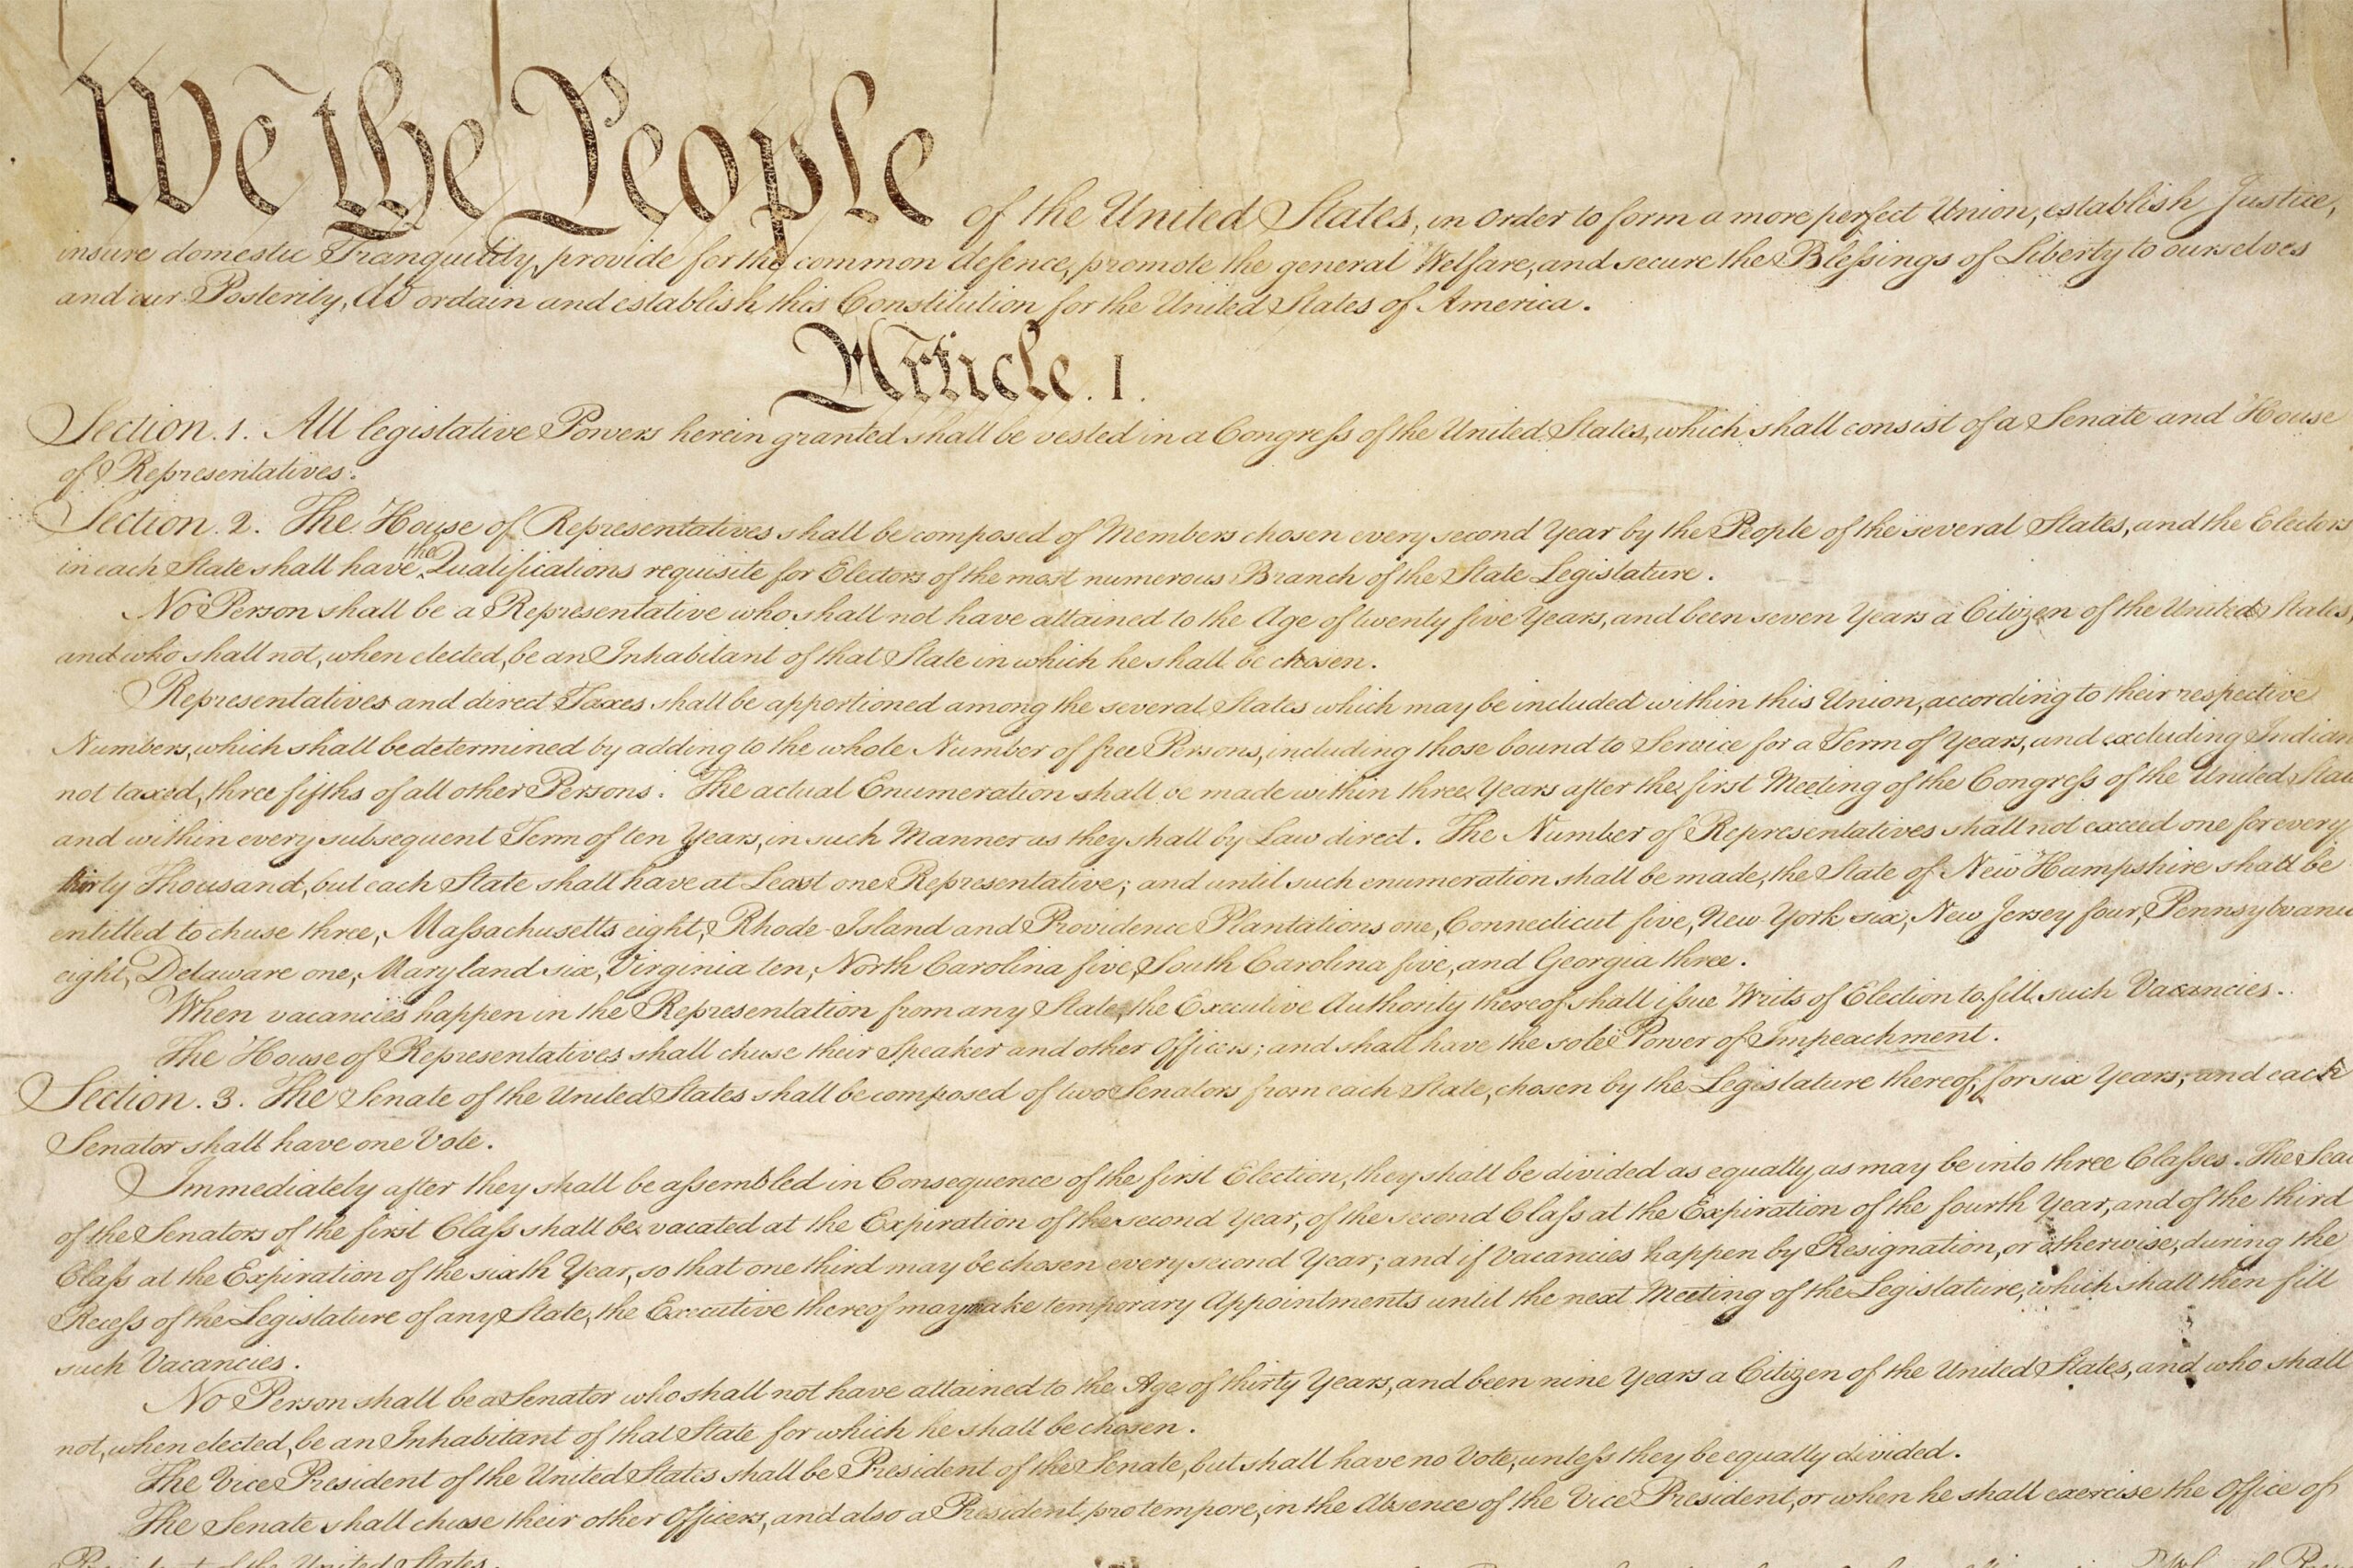 We the People of the United States, in Order to form a more perfect Union, establish Justice,
insure domestic Tranquility, provide for the common defence, promote the general Welfare, and secure the Blessings of Liberty to ourselves
and our Posterity, do ordain and establish this Constitution for the United States of America.
Article. I.
Section. 1. All legislative Powers herein granted shall be vested in a Congress of the United States, which shall consist of a Senate and House
of Representatives.
Section. 2. The House of Representatives shall be composed of Members chosen every second Year by the People of the several States, and the Electors
in each State shall have the Qualifications requisite for Electors of the most numerous Branch of the State Legislature.
No Person shall be a Representative who shall not have attained to the Age of twenty five Years, and been seven Years a Citizen of the United States,
and who shall not, when elected, be an Inhabitant of that State in which he shall be chosen.
Representatives and direct Taxes shall be apportioned among the several States which may be included within this Union, according to their respective
Numbers, which shall be determined by adding to the whole Number of free Persons, including those bound to Service for a Term of Years, and excluding Indian
not taxed, three fifths of all other Persons. The actual Enumeration shall be made within three Years after the first Meeting of the Congress of the United Stat
and within every subsequent Term of ten Years, in such Manner as they shall by Law direct. The Number of Representatives shall not exceed one for every
thirty Thousand, but each State shall have at Least one Representative; and until such enumeration shall be made, the State of New Hampshire shall be
entitled to chuse three, Massachusetts eight, Rhode-Island and Providence Plantations one, Connecticut five, New-York six, New Jersey four, Pennsylvania
eight, Delaware one, Maryland six, Virginia ten, North Carolina five, South Carolina five, and Georgia three.
When vacancies happen in the Representation from any State, the Executive Authority thereof shall issue Writs of Election to fill such Vacancies.
The House of Representatives shall chuse their Speaker and other Officers; and shall have the sole Power of Impeachment.
Section. 3. The Senate of the United States shall be composed of two Senators from each State, chosen by the Legislature thereof, for six Years; and each
Senator shall have one Vote.
Immediately after they shall be assembled in Consequence of the first Election, they shall be divided as equally as may be into three Classes. The Sea
of the Senators of the first Class shall be vacated at the Expiration of the second Year, of the second Class at the Expiration of the fourth Year, and of the third
Class at the Expiration of the sixth Year, so that one third may be chosen every second Year; and if Vacancies happen by Resignation, or otherwise, during the
Recess of the Legislature of any State, the Executive thereof may make temporary Appointments until the next Meeting of the Legislature, which shall then fill
such Vacancies.
No Person shall be a Senator who shall not have attained to the Age of thirty Years, and been nine Years a Citizen of the United States, and who shall
not, when elected, be an Inhabitant of that State for which he shall be chosen.
The Vice President of the United States shall be President of the Senate, but shall have no Vote, unless they be equally divided.
The Senate shall chuse their other Officers, and also a President pro tempore, in the Absence of the Vice President, or when he shall exercise the Office of
President of the United States.